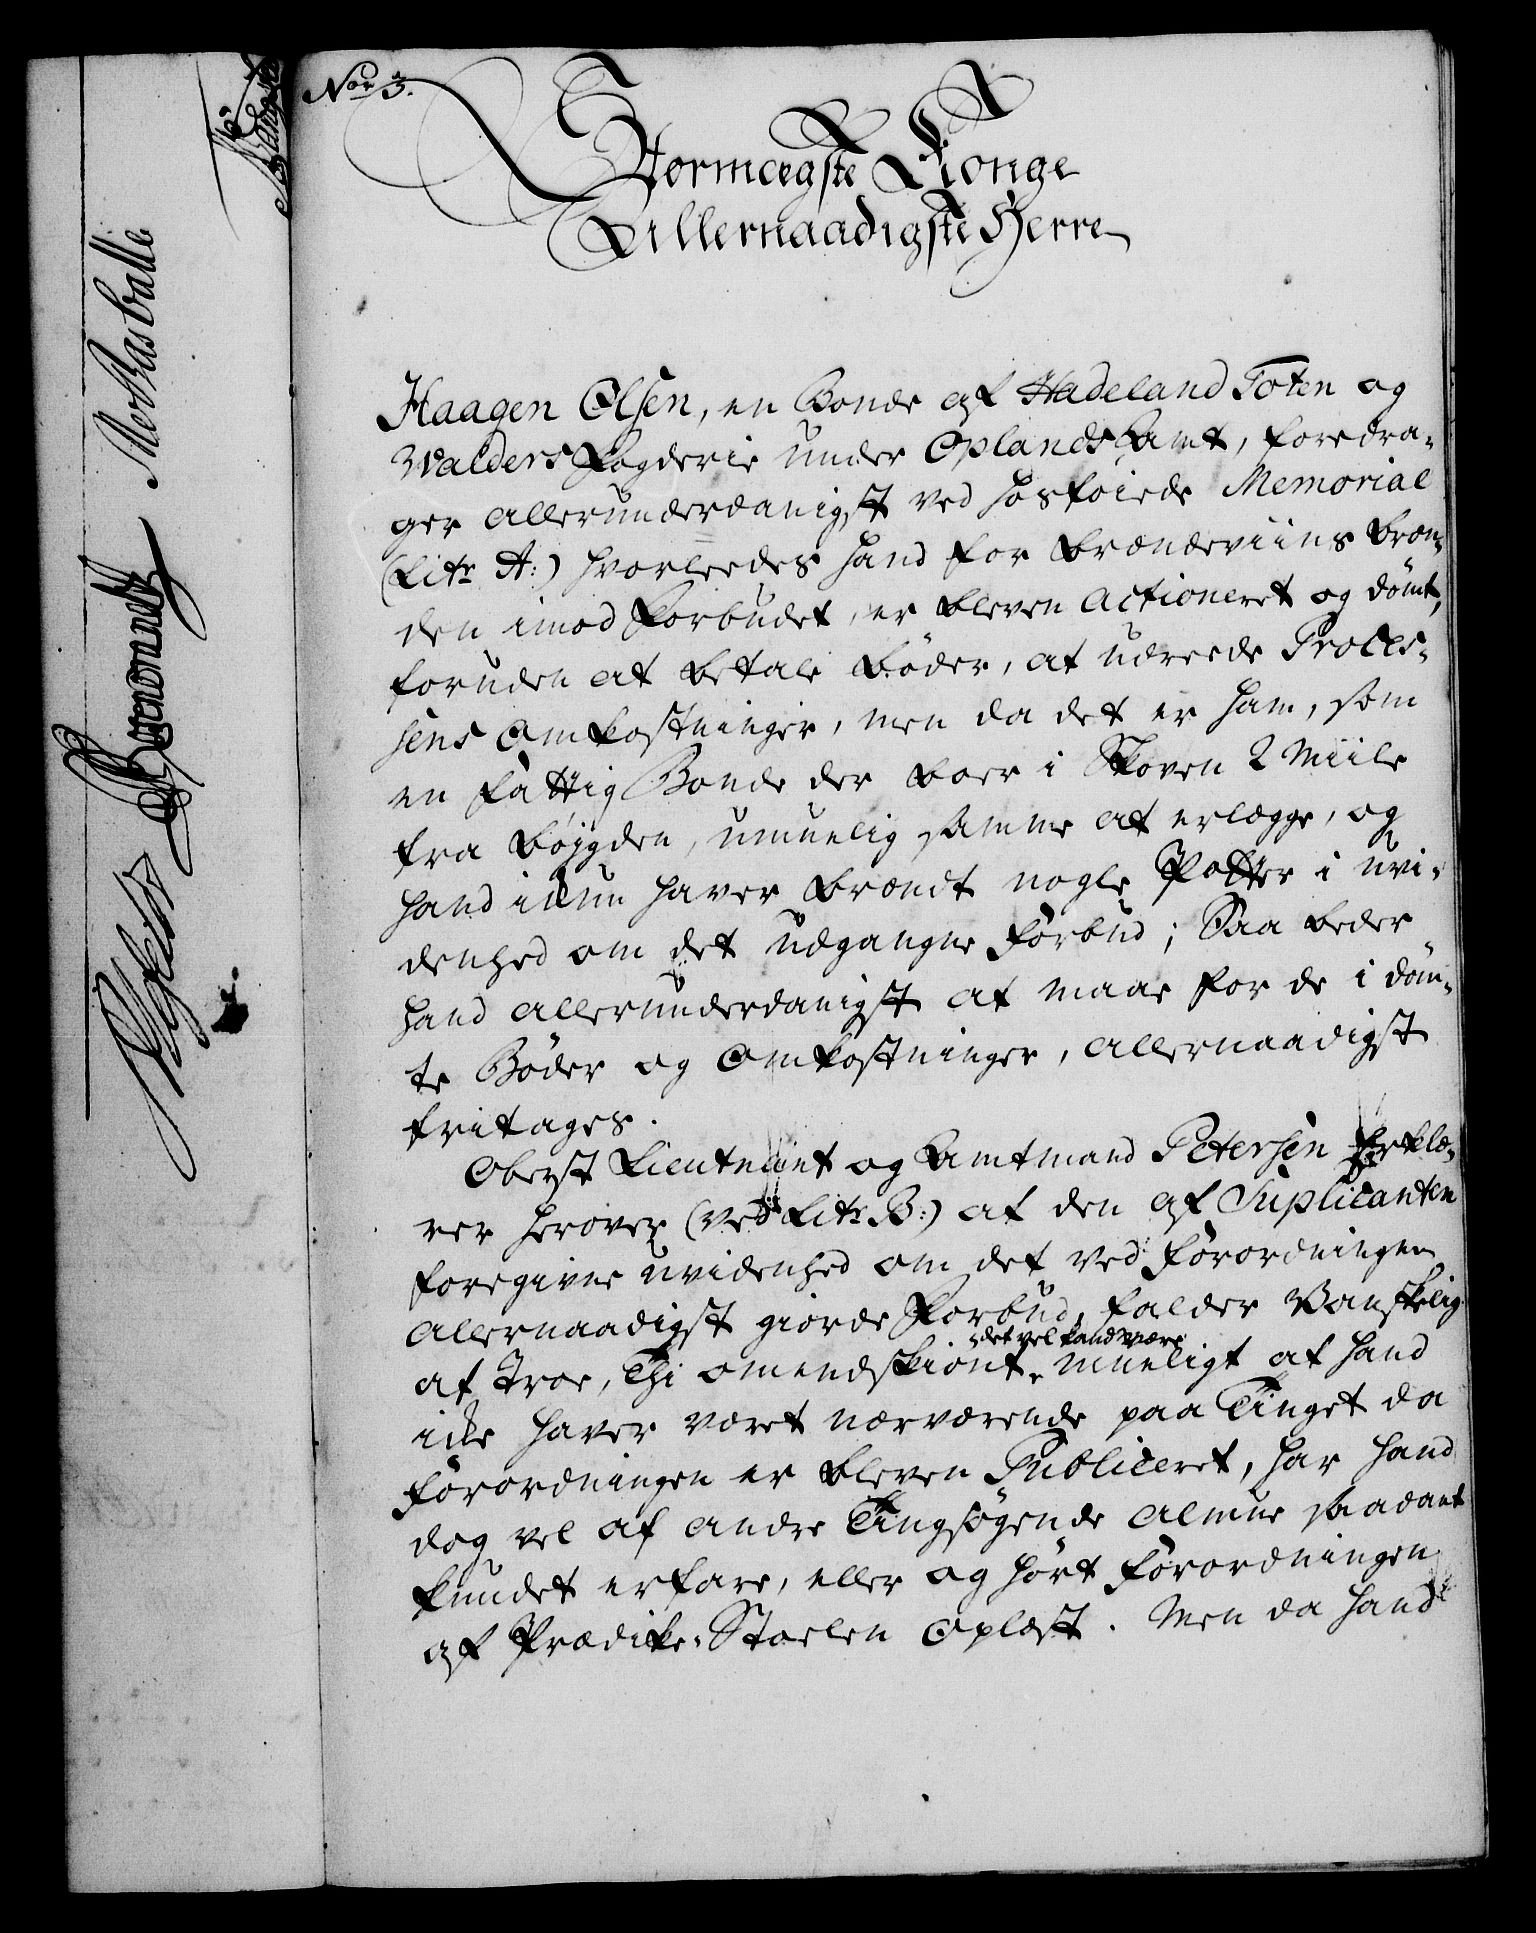 Nor 3.
Stormægste Konge
Allernaadigste Herre
Haagen Olsen, en Bonde af Hadeland Toten og
Walders Fogderie under Oplands Amt, foredra-
ger allerunderdanigst ved hosføiede Memorial
(Litr A:) hvorledes hand for Brændeviins Bræn-
den imod Forbudet, er bleven actioneret og dømt,
foruden at betale Bøder, at udreede Proces-
sens Omkostninger, men da det er ham, som
en fattig Bonde der boer i Skoven 2 Miile
fra Bøjgden, umuelig samme at erlægge, og
hand ikkun haver brændt nogle Potter i uvi-
denhed om det udgangne Forbud; Saa beder
hand allerunderdanigst at maae for de i døm-
te Bøder og Omkostninger, allernaadigst
fritages.
Oberst Lieutnant og Amtmand Petersen Erklæ-
rer herover (ved Litr B:) at den af Suplicanten
foregivne uvidenhed om det ved Forordningen
allernaadigst giorde Forbud, falder Vanskelig
at troe, Thi omendskiønt det vel kand være mueligt at hand
icke haver været nærværende paa Tinget da
Forordningen er bleven Publiceret, har hand
dog vel af andre Tingsøgende Almue saadant
kundet erfare, eller og hørt Forordningen
af Prædike-Stoelen Oplæst. Men da hand